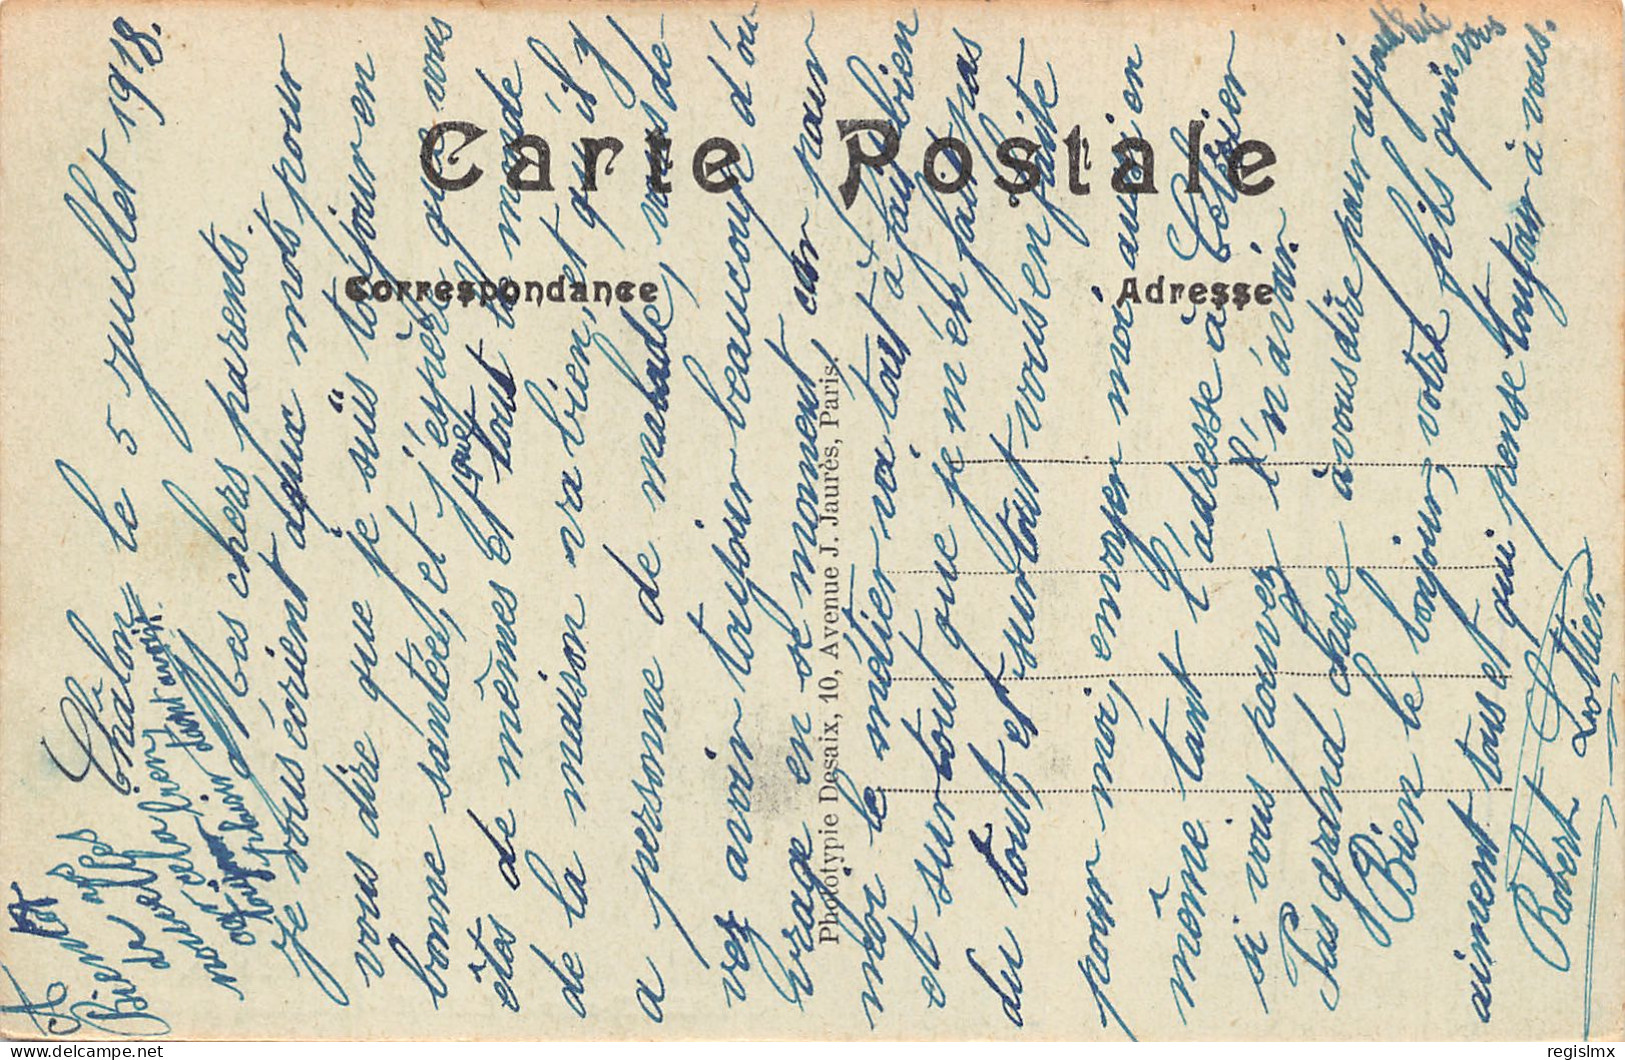 Carte Postale
Correspondance
Adresse
Phototypie Desaix, 10, Avenue J. Jaurès, Paris.
Châlon le 5 juillet 1918.
Mes chers parents.
je vous écrient deux mots pour
vous dire que je suis toujour en
bonne santée, et j'espère que vous
êtes de mêmes et que tout le monde
de la maison va bien, et qu'il y
a personne de malade, vous de-
vez avoir toujour beaucoup d'ou-
vrage en ce moment, car pour
moi le métier va tout à fait bien
et surtout que je m'en fait pas
du tout, et surtout vous en faite
pour moi, envoyer moi aussi en
même tant l'adresse à Letixier
si vous pouvez l'n'avoir.
Pas grand chose à vous dire pour aujourd'hui
Bien le bonjour, votre fils qui vous
aiment tous et qui pense toujour à vous.
Robert Lottier
Bien des
de
nouvelles
si cela
vient
toujour
plaisir d'en avoir.
regislmx